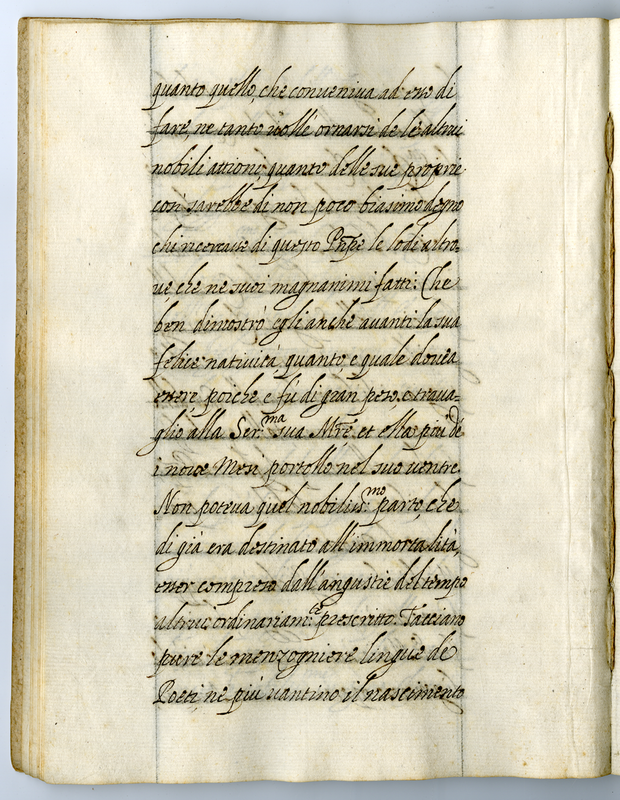 quanto quello, che conveniva ad esso di
fare, ne tanto volle ornarsi de le altrui
nobili attioni, quanto delle sue proprie
così sarebbe di non poco biasimo degno
chi ricercasse di questo Prñpe le lodi altro-
ue che ne suoi magnanimi fatti. Che
ben dimostrò egli anche auanti la sua
felice natiuità, quanto, e quale douea
essere, poiche e fù di gran peso, e trava-
glio alla Ser.ma sua Mr̃e, et ella più de
i noue Mesi portollo nel suo uentre.
Non poteua quel nobiliss.mo parto, che
di già era destinato all'immortalità,
esser compreso dall'angustie del tempo
altrui ordinariam.te prescritto. Tacciano
pure le menzogniere lingue de
Poeti, ne più uantino il nascimento